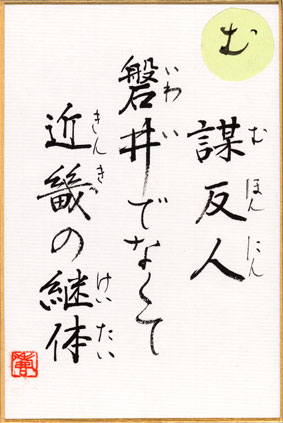 む
謀反人
むほんにん
磐井でなくて
いわい
近畿の継体
きんき
けいたい